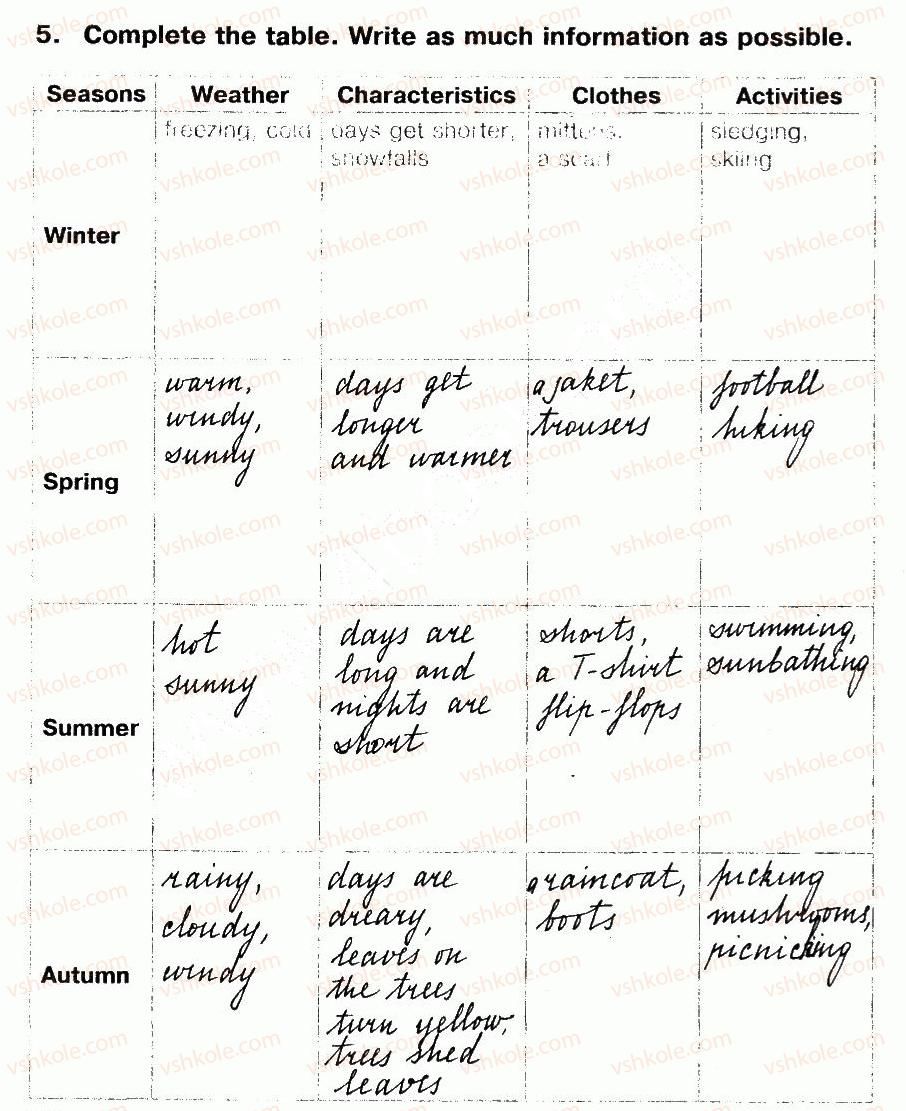 5. Complete the table. Write as much information as possible.
Seasons Weather Characteristics Clothes Activities
Winter
freezing, cold
days get shorter,
snowfalls
mittens,
a scarf
sledging,
skiing
Spring
warm,
windy,
sunny
days get
longer
and warmer
a jaket,
trousers
football
hiking
Summer
hot
sunny
days are
long and
nights are
short
shorts,
a T-shirt
flip-flops
swimming,
sunbathing
Autumn
rainy,
cloudy,
windy
days are
dreary,
leaves on
the trees
turn yellow,
trees shed
leaves
a raincoat,
boots
picking
mushrooms,
picnicking
vshkole.com